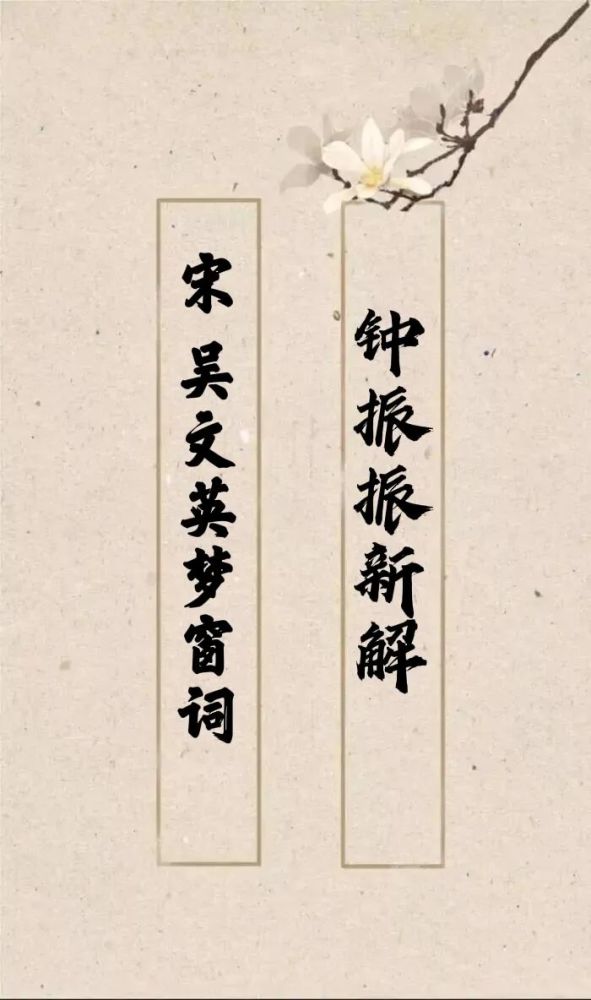 钟振振新解
宋 吴文英梦窗词